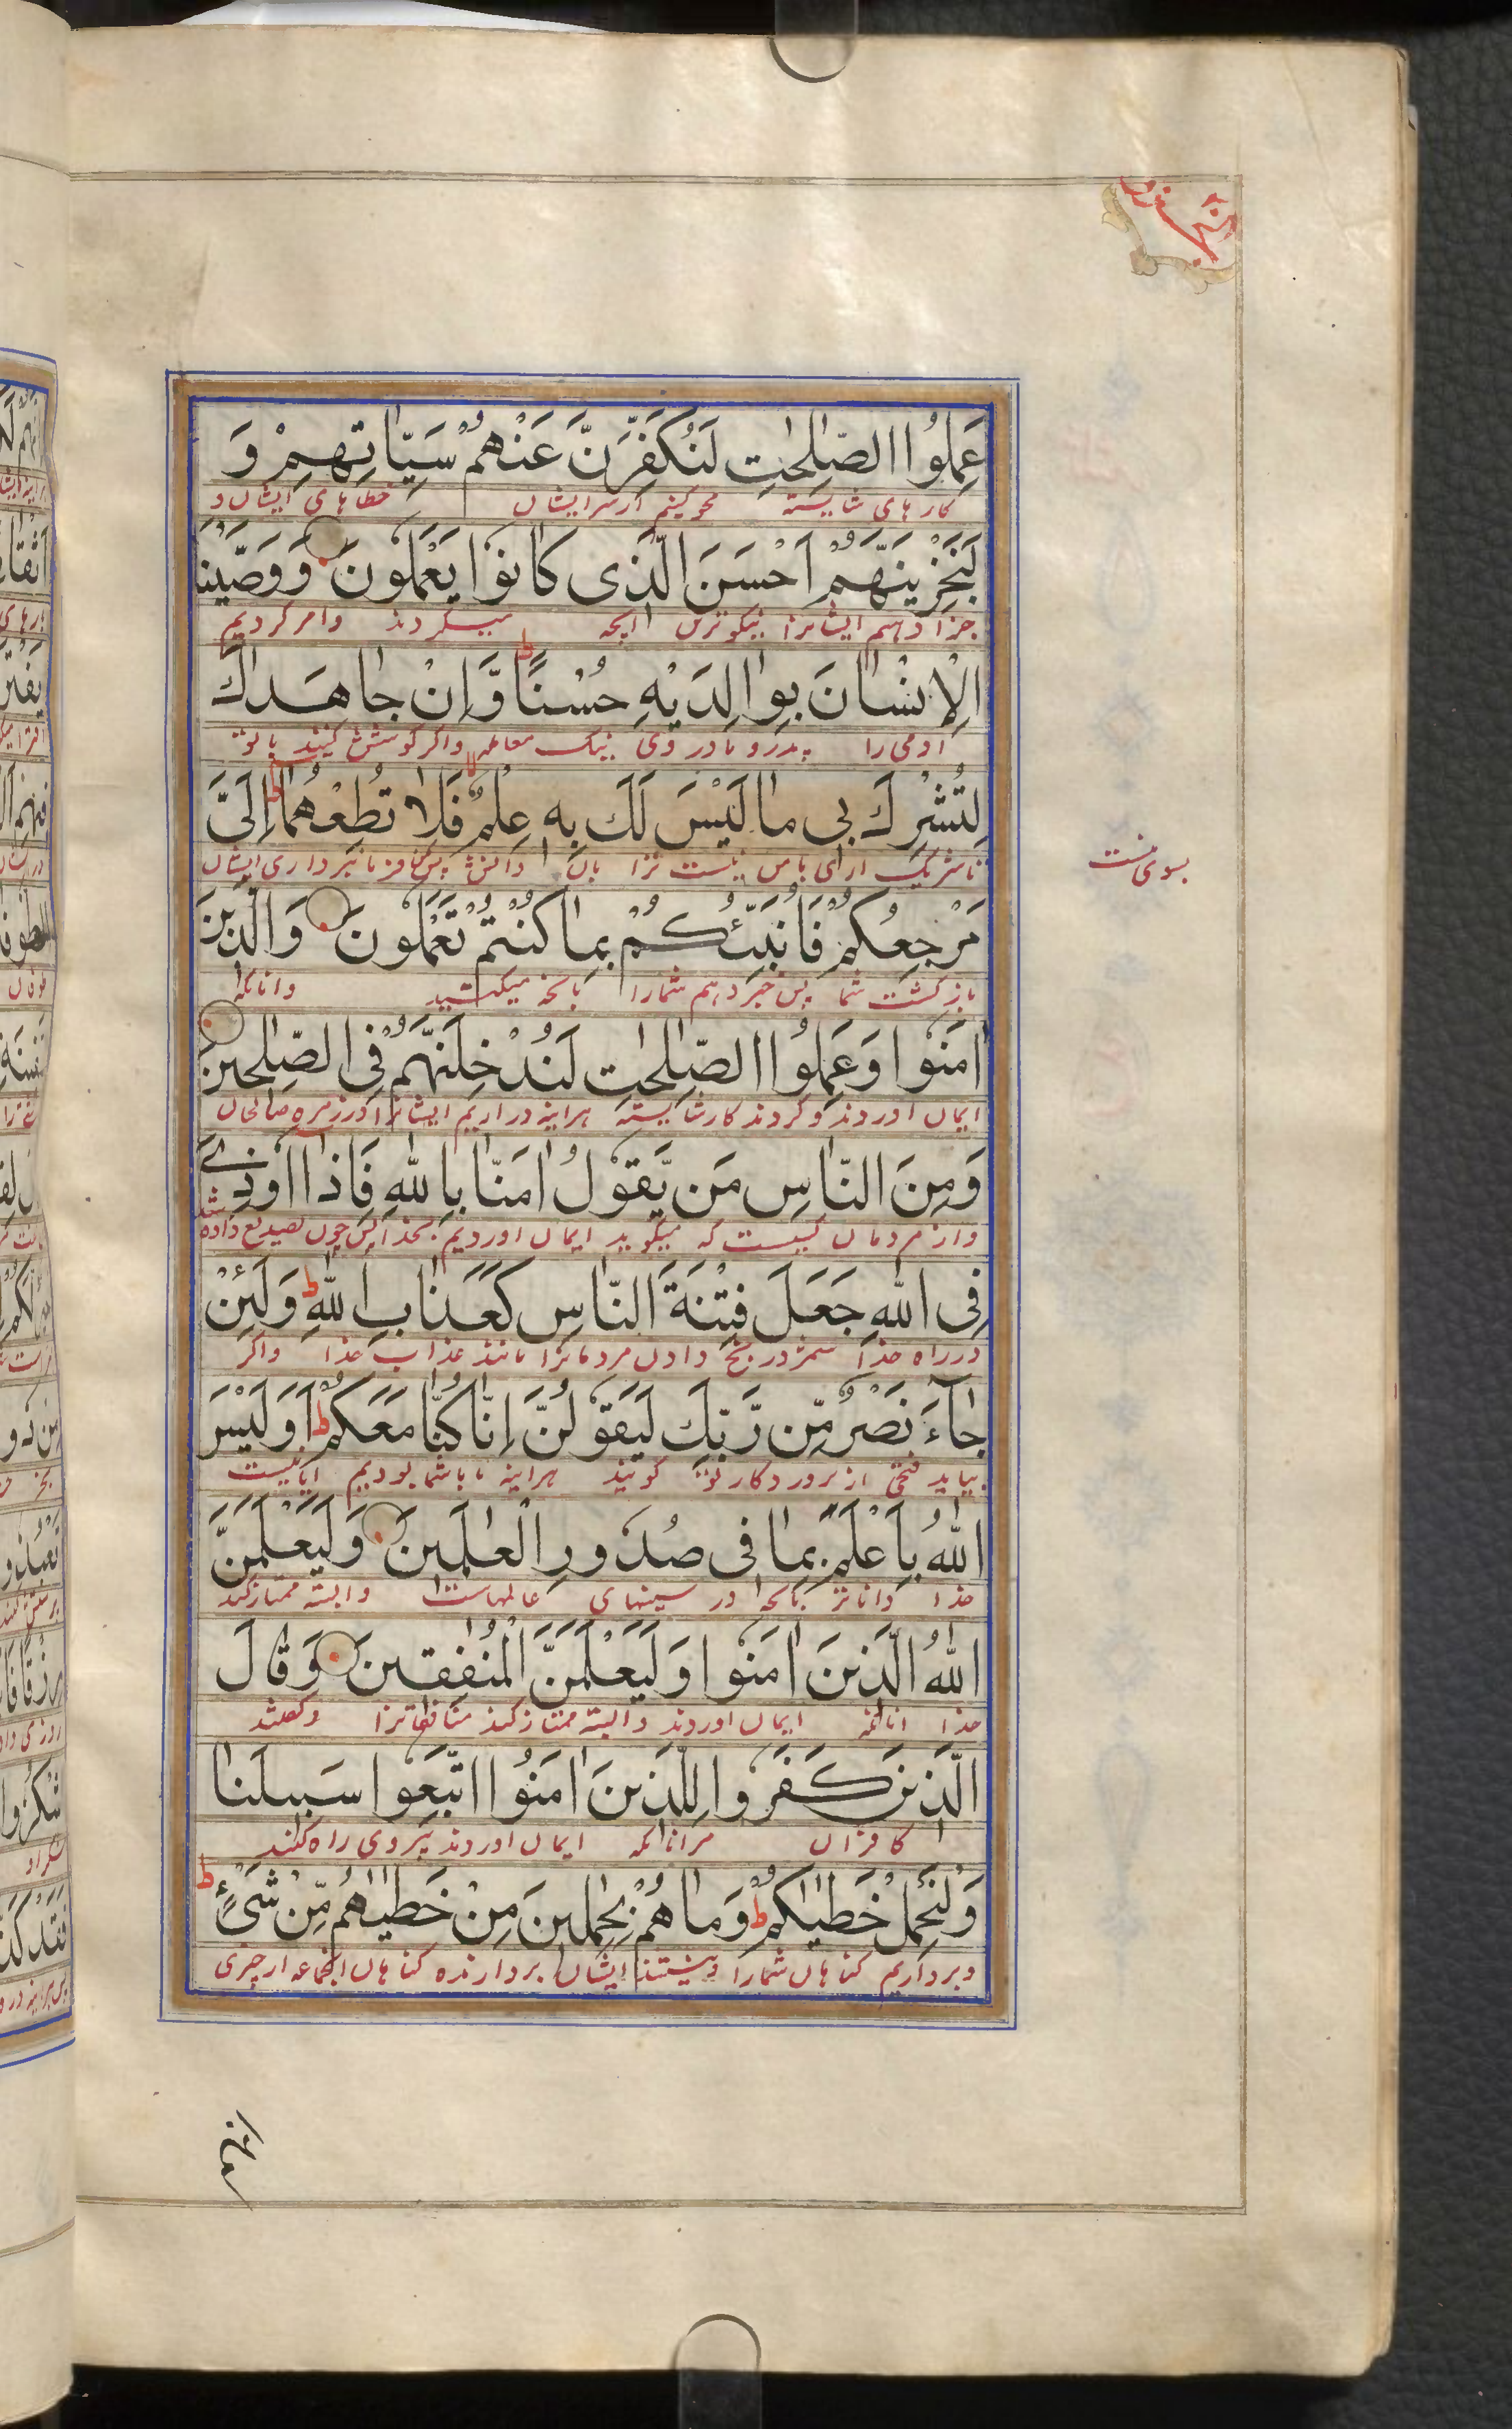 عَمِلُوا الصّٰلِحٰتِ لَنُكَفِّرَنَّ عَنْهُمْ سَيِّاٰتِهِمْ وَ
کارهای شایسته محو کنیم از سر ایشان خطاهای ایشان و
لَنَجْزِيَنَّهُمْ اَحْسَنَ الَّذِى كَانُوْا يَعْمَلُوْنَ وَوَصَّيْنَا
جزا دهیم ایشانرا نیکوترین آنچه میکردند و امر کردیم
الْاِنْسَانَ بِوَالِدَيْهِ حُسْنًا ط وَّاِنْ جَاهَدٰكَ
ادمی را پدر و مادر وی نیک معامله و اگر کوشش کنند باتو
لِتُشْرِكَ بِى مَا لَيْسَ لَكَ بِهٖ عِلْمٌ فَلَا تُطِعْهُمَا ط اِلَىَّ
تا شریک اری با من نیست ترا بان دانش پس فرمانبرداری ایشان
بسوی منست
مَرْجِعُكُمْ فَاُنَبِّئُكُمْ بِمَا كُنْتُمْ تَعْمَلُوْنَ وَالَّذِيْنَ
بازگشت شما پس خبر دهم شمارا بانچه میکردید و انانکه
اٰمَنُوْا وَعَمِلُوا الصّٰلِحٰتِ لَنُدْخِلَنَّهُمْ فِى الصّٰلِحِيْنَ
ایمان اوردند و کردند کار شایسته هراینه در اریم ایشانرا در زمره صالحان
وَمِنَ النَّاسِ مَن يَّقُوْلُ اٰمَنَّا بِاللّٰهِ فَاِذَا اُوْذِىَ
و از مردمان کیست که میگوید ایمان اوردیم بخدا پس چون تصدیع داده شد
فِى اللّٰهِ جَعَلَ فِتْنَةَ النَّاسِ كَعَذَابِ اللّٰهِ ط وَلَئِنْ
در راه خدا شمرد رنج دادن مردمانرا مانند عذاب خدا واگر
جَآءَ نَصْرٌ مِّن رَّبِّكَ لَيَقُوْلُنَّ اِنَّا كُنَّا مَعَكُمْ ط اَوَلَيْسَ
بیاید فتحی از پروردکار تو گویند هراینه ما باشما بودیم ایا نیست
اللّٰهُ بِاَعْلَمَ بِمَا فِى صُدُوْرِ الْعٰلَمِيْنَ وَلَيَعْلَمَنَّ
خدا داناتر بانچه در سینهای عالمهاست و البته ممتاز کند
اللّٰهُ الَّذِيْنَ اٰمَنُوْا وَلَيَعْلَمَنَّ الْمُنٰفِقِيْنَ وَقَالَ
خدا انانکه ایمان اوردند و البته ممتاز کند منافقانرا و گفتند
الَّذِيْنَ كَفَرُوْا لِلَّذِيْنَ اٰمَنُوا اتَّبِعُوْا سَبِيْلَنَا
کافران مرانانکه ایمان اوردند پیروی راه کنند
وَلْنَحْمِلْ خَطٰيٰكُمْ ط وَمَا هُمْ بِحٰمِلِيْنَ مِنْ خَطٰيٰهُمْ مِّنْ شَىْءٍ ط
و برداریم کناهان شمارا و نیستند ایشان بردارنده کناهان انجماعه از چیزی